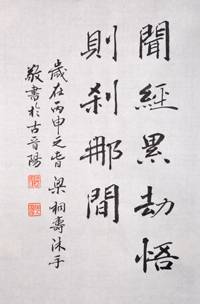 聞經累劫悟
則刹那間
歲在丙申之皆梁桐壽沐手
敬書於古晉陽